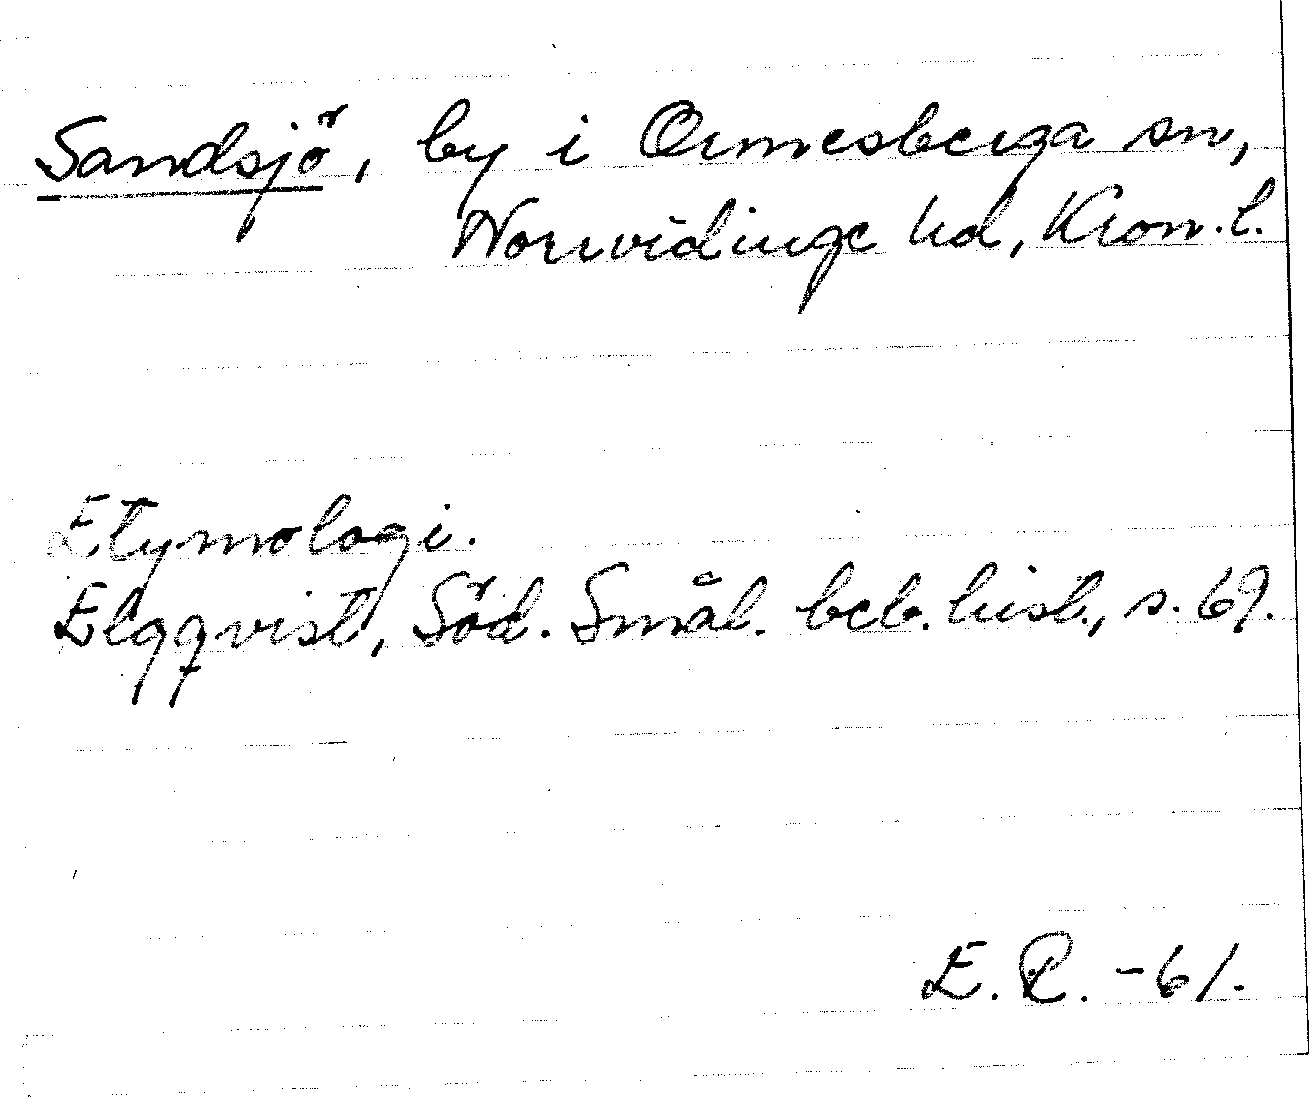 Sandsjö, by i Ormesberga sn,
Norrvidinge hd, Kron. l.
Etymologi.
Elgqvist, Söd. Smål. beb. hist., s. 69.
E. R. -61.